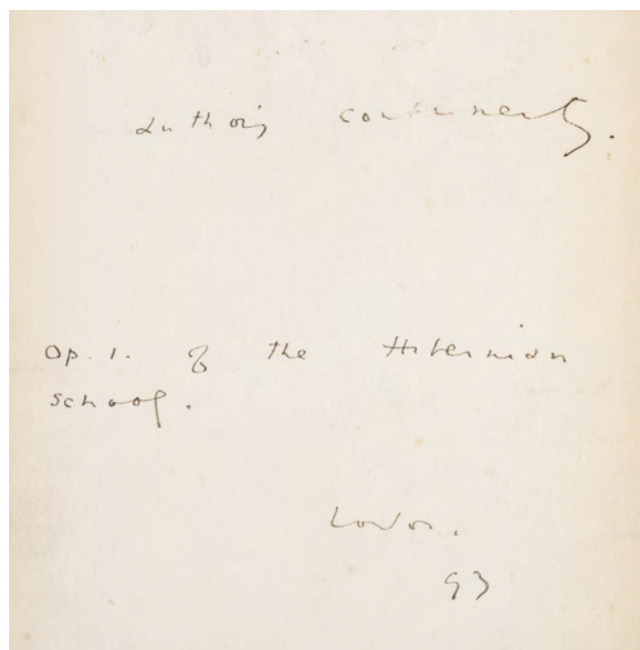 Author's compliments.
Op. 1. of the Hibernian
School.
London.
93